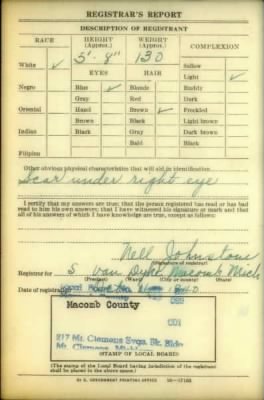 REGISTRAR'S REPORT
DESCRIPTION OF REGISTRANT
RACE HEIGHT (Approx.) WEIGHT (Approx.) COMPLEXION
White ✓ 5'-8" 130 Sallow
EYES HAIR Light ✓
Negro Blue ✓ Blonde Ruddy
Gray Red Dark
Oriental Hazel Brown ✓ Freckled
Brown Black Light brown
Indian Black Gray Dark brown
Bald Black
Filipino
Other obvious physical characteristics that will aid in identification
Scar under right eye
I certify that my answers are true; that the person registered has read or has
read to him his own answers; that I have witnessed his signature or mark and that
all of his answers of which I have knowledge are true, except as follows:
Nell Johnstone
(Signature of registrar)
Registrar for S. Van Dyke Macomb Mich
(Precinct) (Ward) (City or county) (State)
Date of registration
Macomb County
001
217 Mt. Clemens Svgs. Bk. Bldg
Mt. Clemens, Mich.
(STAMP OF LOCAL BOARD)
(The stamp of the Local Board having jurisdiction of the registrant
shall be placed in the above space.)
U. S. GOVERNMENT PRINTING OFFICE